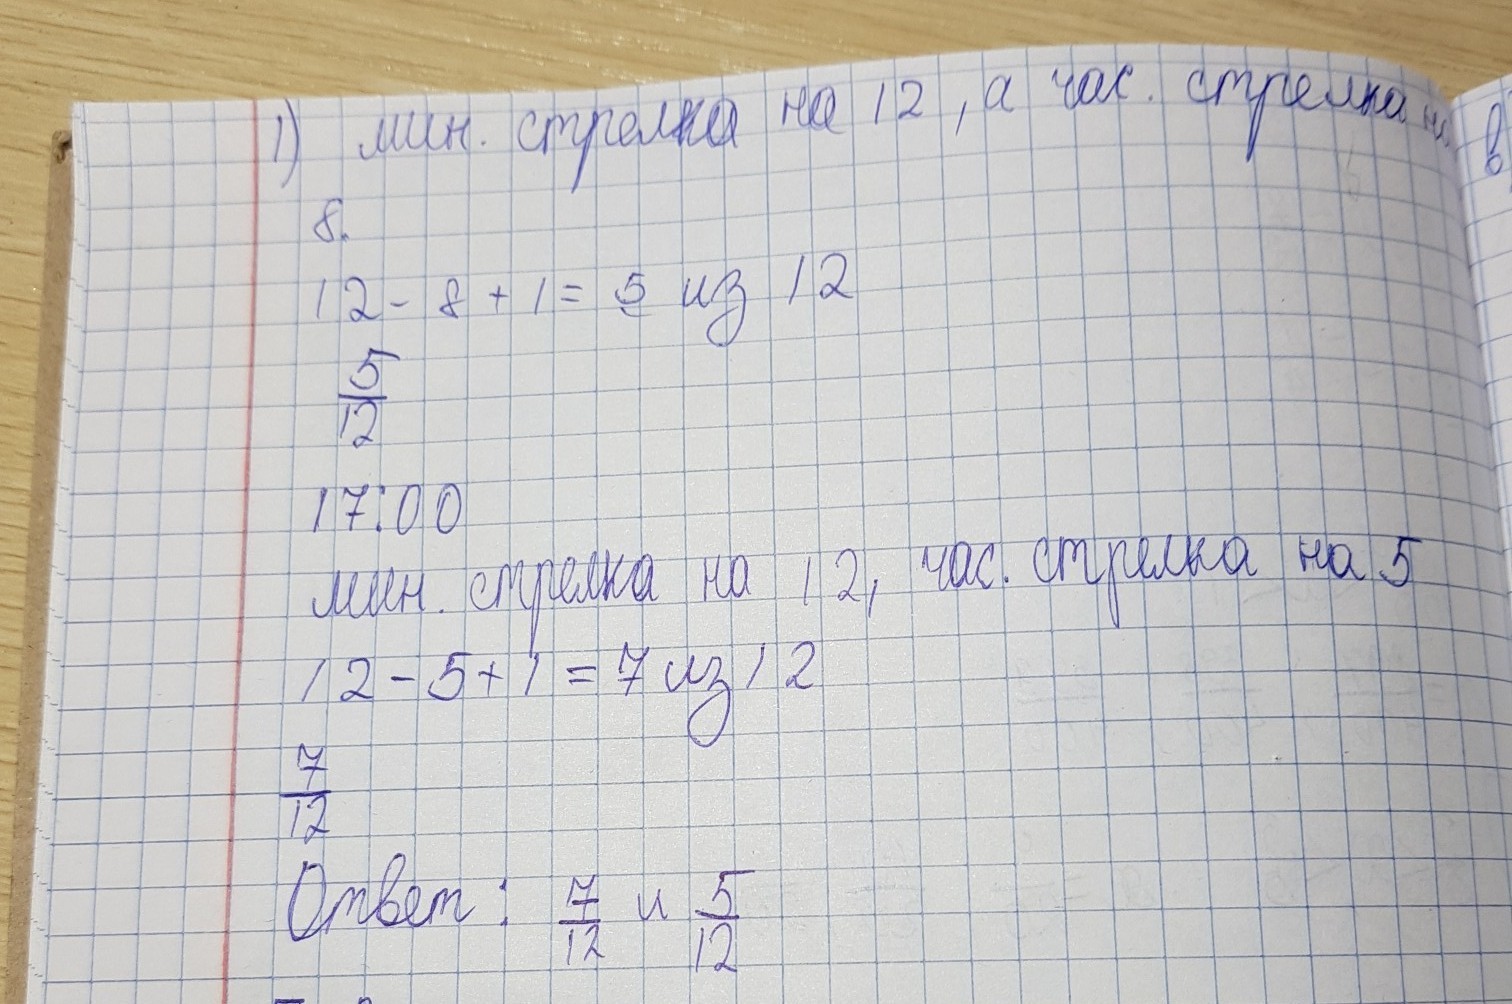 1) мин. стрелка на 12, а час. стрелка на
8.
12 - 8 + 1 = 5 из 12
5
12
17:00
мин. стрелка на 12, час. стрелка на 5
12 - 5 + 1 = 7 из 12
7
12
Ответ: 7/12 и 5/12